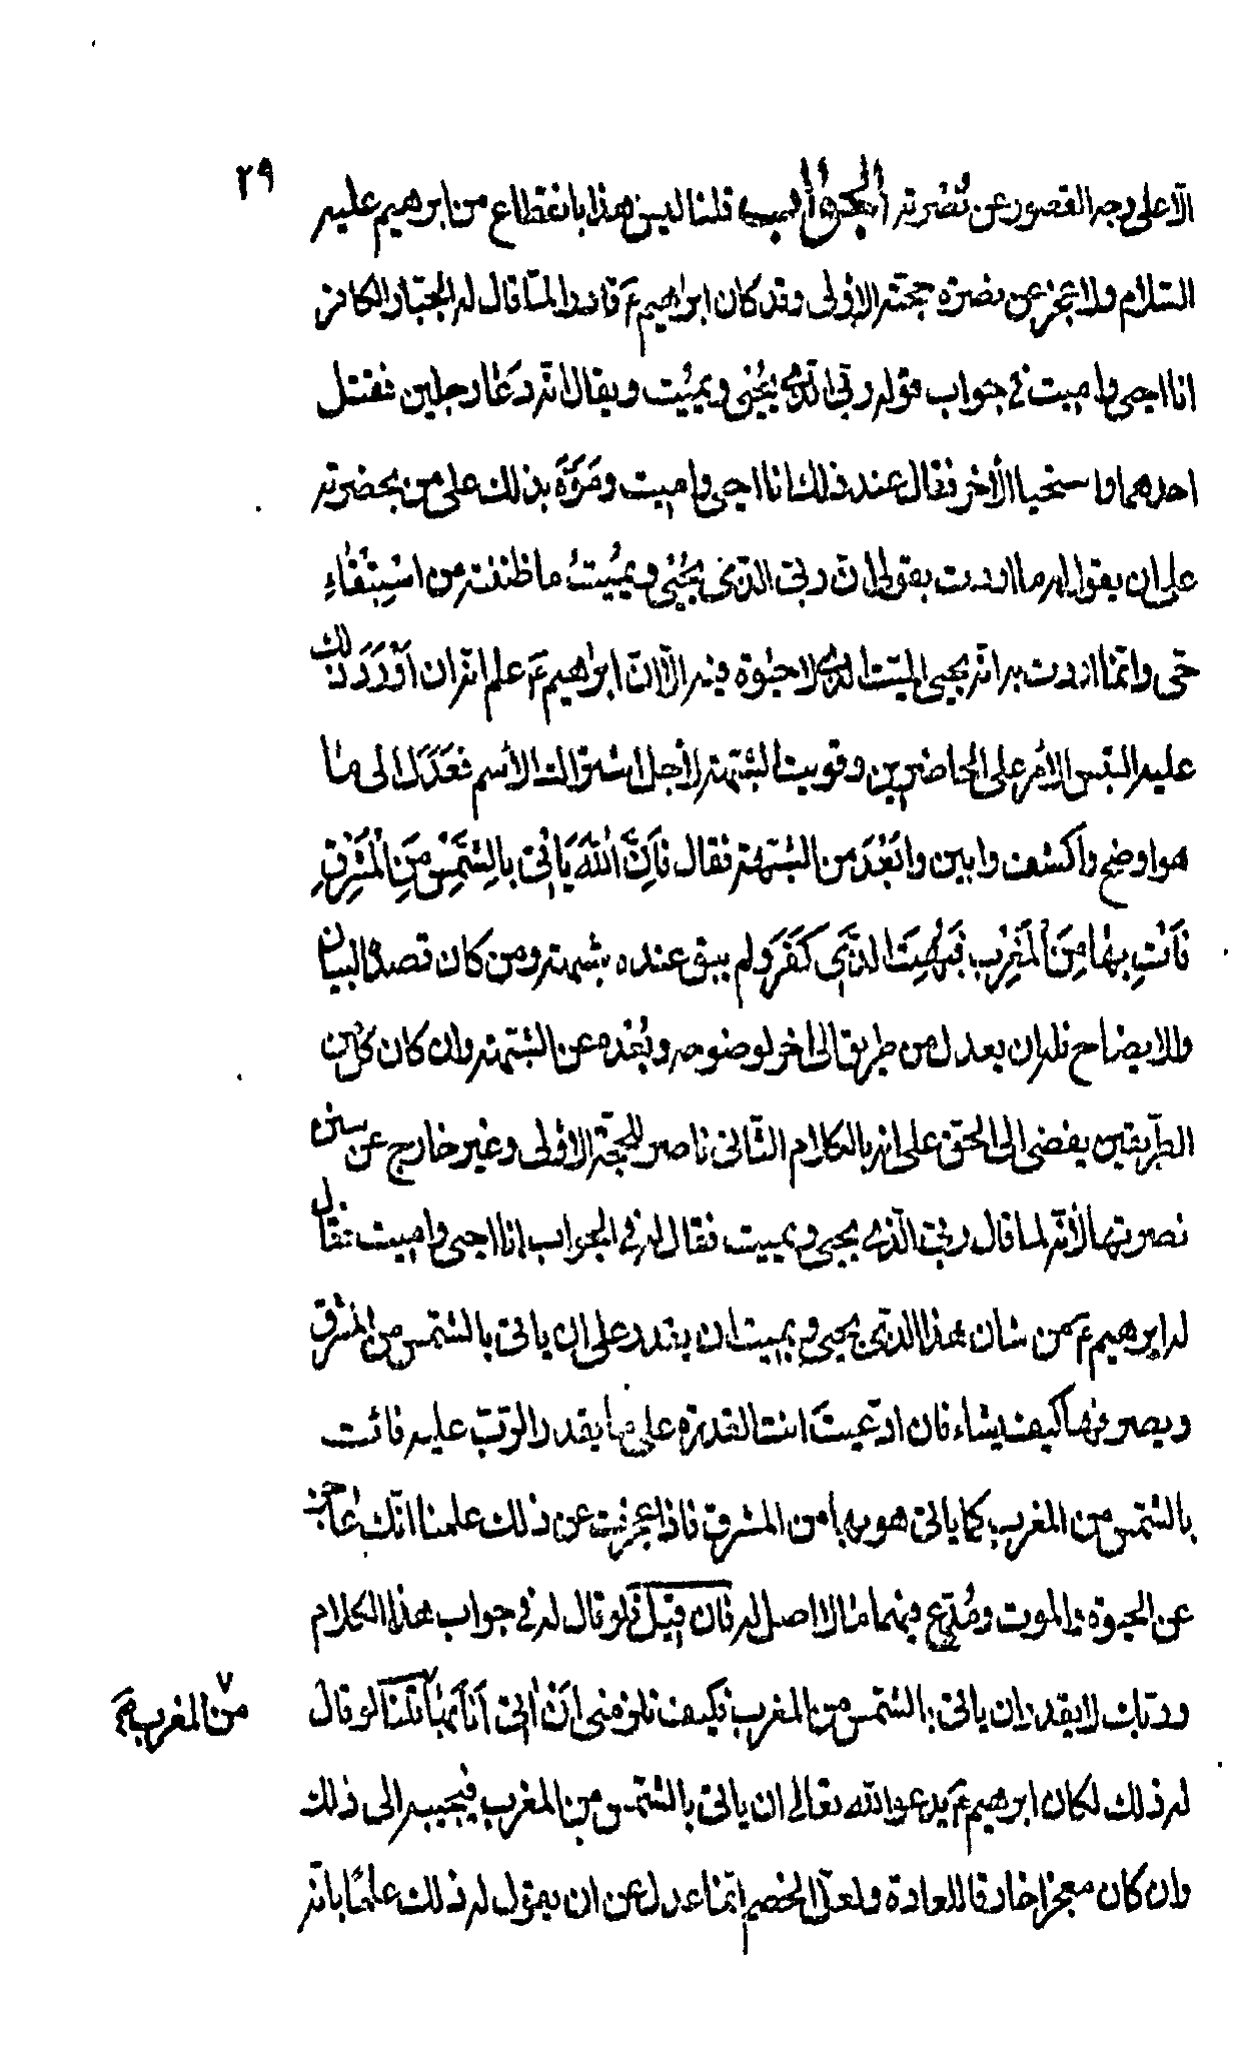 ٢٩
الا على وجه القصور عن نُصْرته الجواب قلنا ليس هذا بانقطاع من ابرهيم عليه
السلام ولا عجز عن نصرة حجته الاولى وقد كان ابراهيم ع قادرا لمّا قال له الجبّار الكافر
انا احيى واميت في جواب قوله ربّى الّذى يُحْيى ويميُت ويقال انّه دَعَا رجلين فقتل
احدهما واستحيا الأخر فقال عند ذلك انا احيى واميت ومَوَّهَ بذلك على من بحضرته
على ان يقول له ما اردت بقولى ان ربّى الّذى يُحْيى ويميُتُ ما ظننته من اسْتِبْقَاءِ
حىّ وانّما اردت به انّه يحيى الميّت الّذى لا حيٰوة فيه الّا انّ ابرٰهيم ع علم انّه ان اَوْرَدَ ذلك
عليه التبس الأمر على الحاضرين وقويت الشّبهة لأجل اشتراك الأسم فعَدَلَ الى مٰا
هو اوضح واكشف وابين وابَعْدَ من الشبهة فقال فَاِنَّ اللّٰهَ يَأتى بِالشَّمْسِ مِنَ الْمَشْرِقِ
فَأتِ بِهٰا مِنَ الْمَغْرِب فَبُهِتَ الَّذى كَفَرَ ولم يبق عنده شبهة ومن كان قصده البيان
والايضاح فله ان يعدل من طريق الى اخر لوضوحه وبُعْده عن الشبهة وان كان كلا من
الطّريقين يفضى الى الحق على انه بالكلام الثّانى ناصر للحجّة الاولى وغير خارج عن سنن
نصرتها لأنّه لما قال ربى الّذى يحيى ويميت فقال له في الجواب انا احيى واميت فقال
له ابرهيم ع من شان هذا الّذى يحيى ويميت ان يقدر على ان ياتى بالشّمس من المشرق
ويصرفها كيف يشاء فان ادّعيتَ انت القدرة على ما يقدر الربّ عليه فائت
بالشّمس من المغرب كما ياتى هو بها من المشرق فاذا عجزت عن ذلك علمنا انّك عٰاجز
عن الحيوة والموت ومُدّعٍ فيهما مٰا لا اصل له فان قيل فلو قال له في جواب هذا الكلام
وربّك لا يقدر ان ياتى بالشّمس من المغرب فكيف تلزمنى اَنْ اٰتى اَنَا بِهَا قلنا لو قال
من المغرب
له ذلك لكان ابرهيم ع يدعو اللّه تعالى ان ياتى بالشّمس من المغرب فيجيبه الى ذلك
وان كان معجزا خارقا للعادة ولعلّ الخصم انّما عدل عن ان يقول له ذلك علمًا بانّه